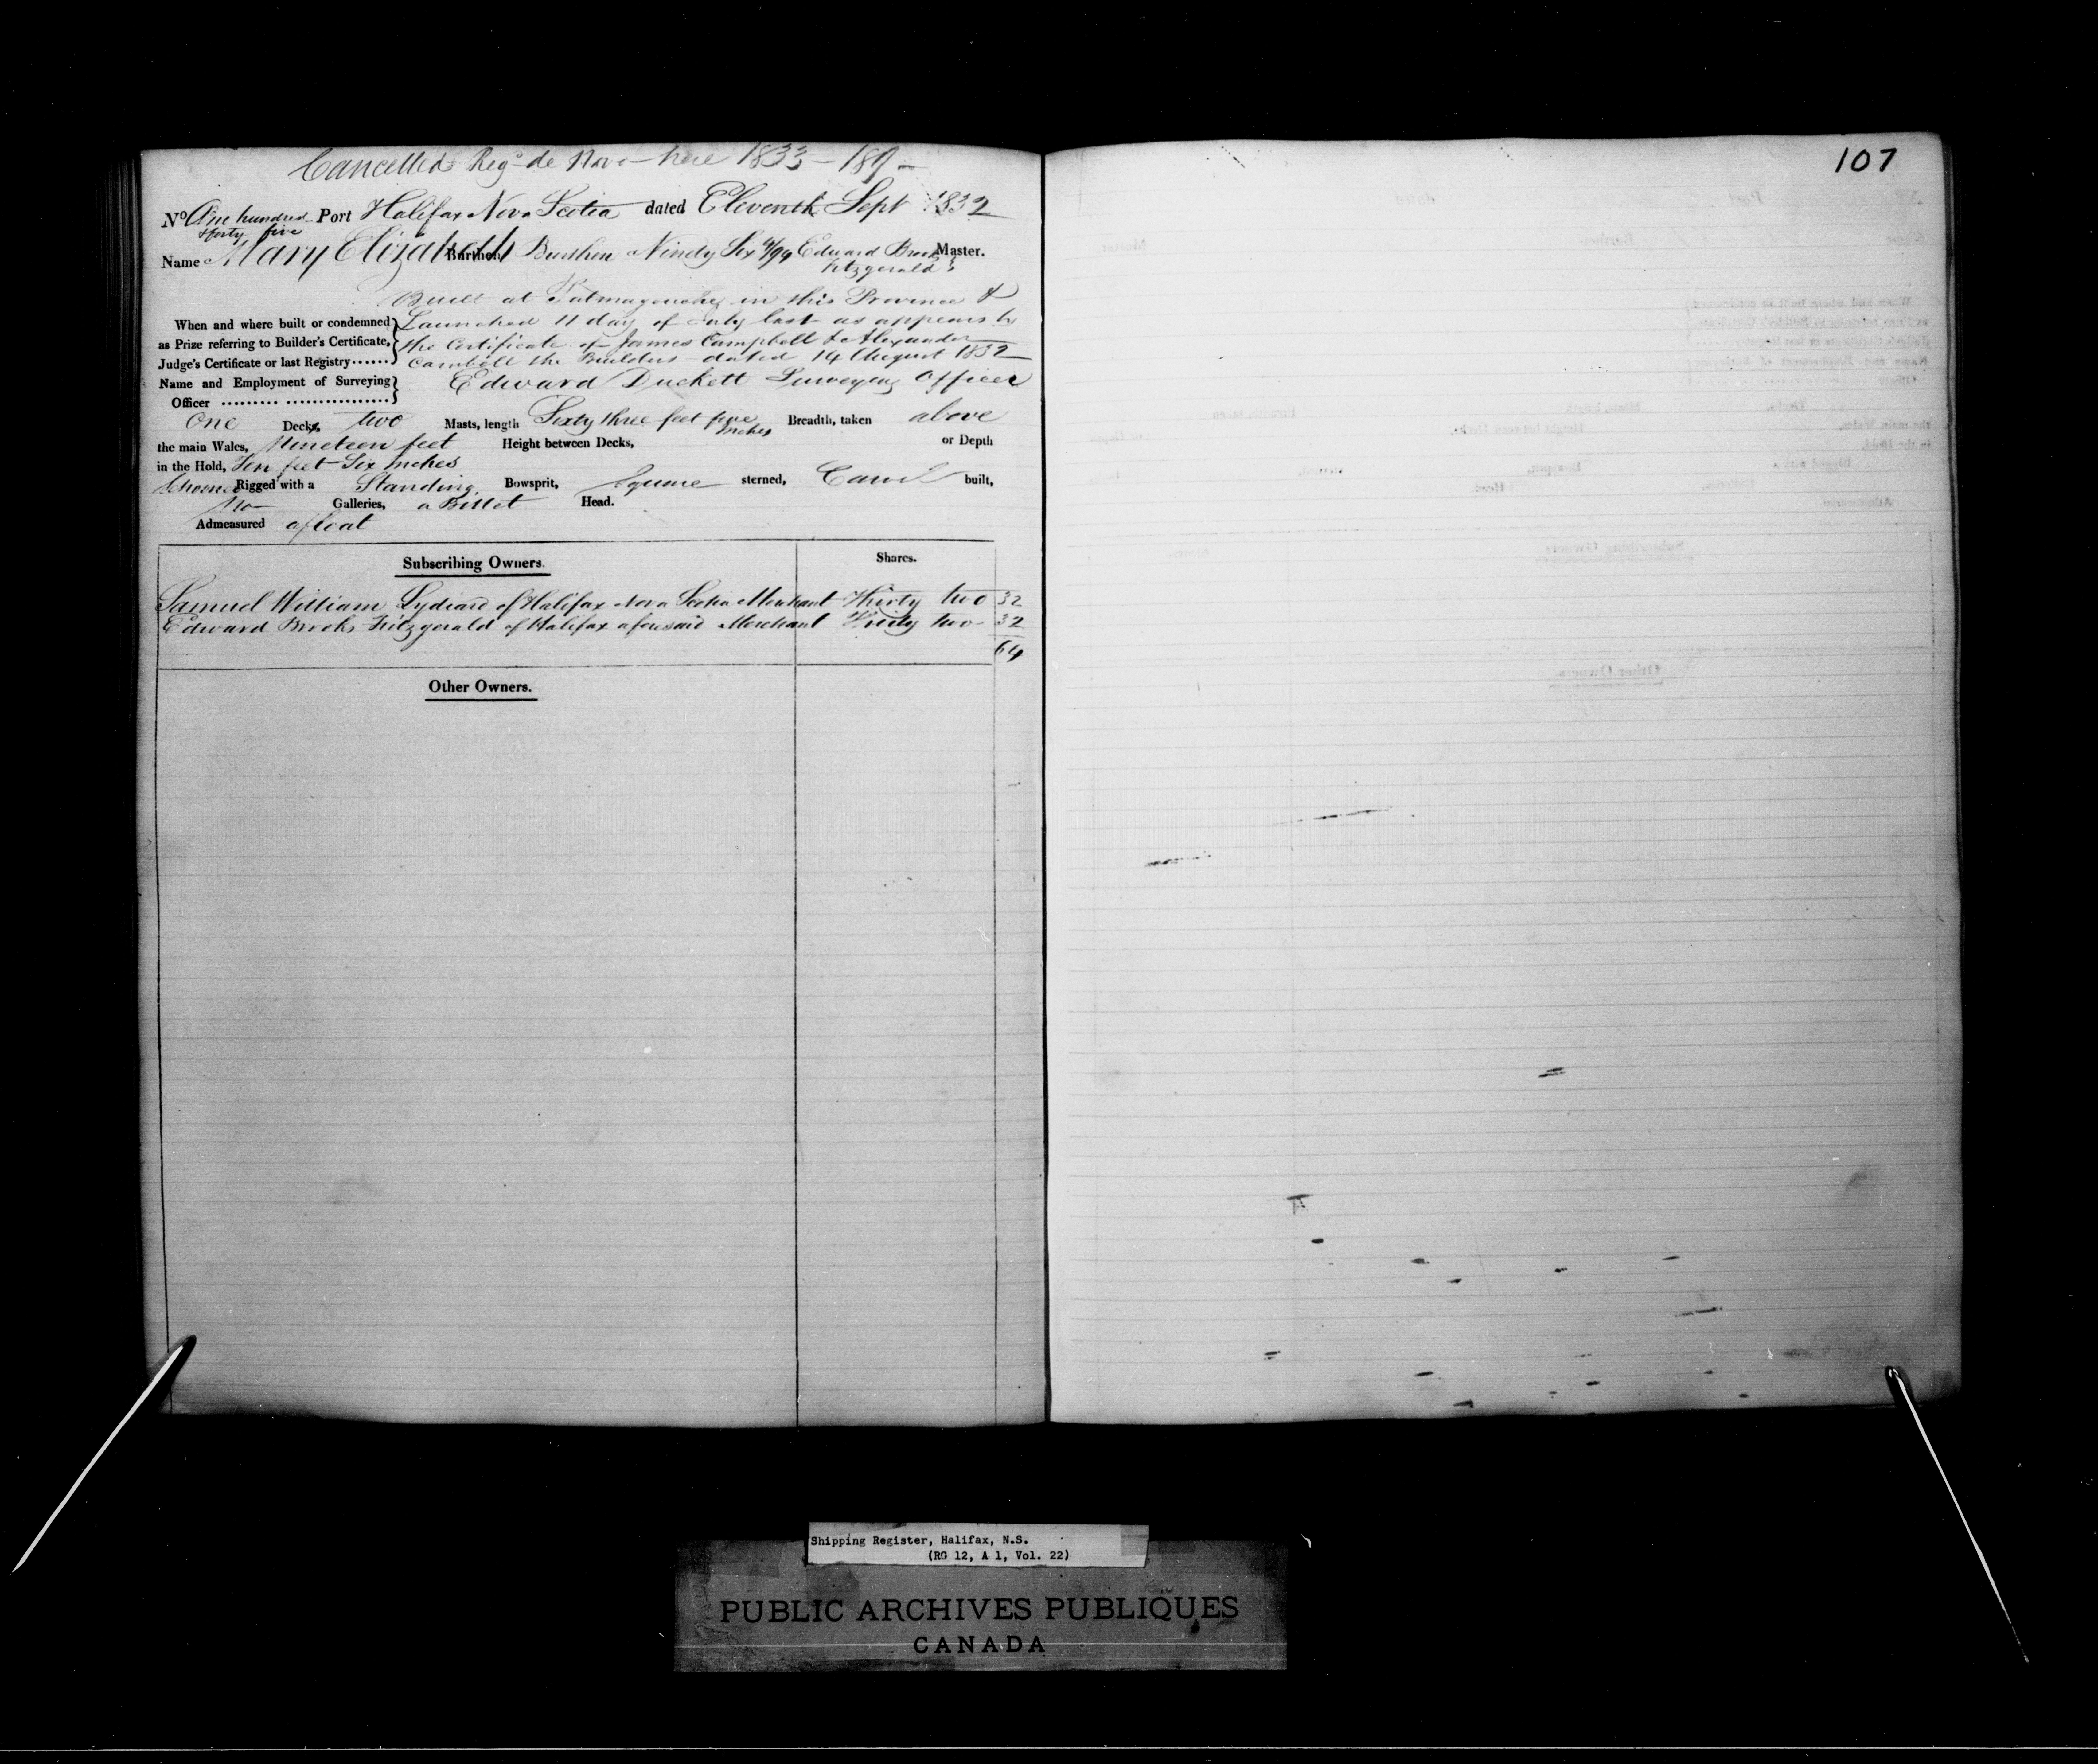 Cancelled Reg de Novo here 1833 - 189 -
107
No One hundred & forty five Port Halifax Nova Scotia dated Eleventh Sept 1832
Name Mary Elizabeth Burthen Burthen Ninety Six 4/94 Edward Brooks Fitzgerald Master.
Built at Tatmagouche in this Province &
When and where built or condemned Launched 11 day of July last as appears by
as Prize referring to Builder's Certificate, the Certificate of James Campbell & Alexander
Judge's Certificate or last Registry...... Cambell the Builders dated 14 August 1832
Name and Employment of Surveying Edward Duckett Surveying Officer
Officer ......... ................
One Decks, two Masts, length Sixty three feet five inches Breadth, taken above
the main Wales, Nineteen feet Height between Decks, or Depth
in the Hold, Ten feet Six Inches
Schooner Rigged with a Standing Bowsprit, Square sterned, Carvel built,
No Galleries, a Billet Head.
Admeasured afloat
Subscribing Owners. Shares.
Samuel William Lydiard of Halifax Nova Scotia Merchant Thirty two 32
Edward Brooks Fitzgerald of Halifax aforesaid Merchant Thirty two 32
64
Other Owners.
Shipping Register, Halifax, N.S.
(RG 12, A 1, Vol. 22)
PUBLIC ARCHIVES PUBLIQUES
CANADA